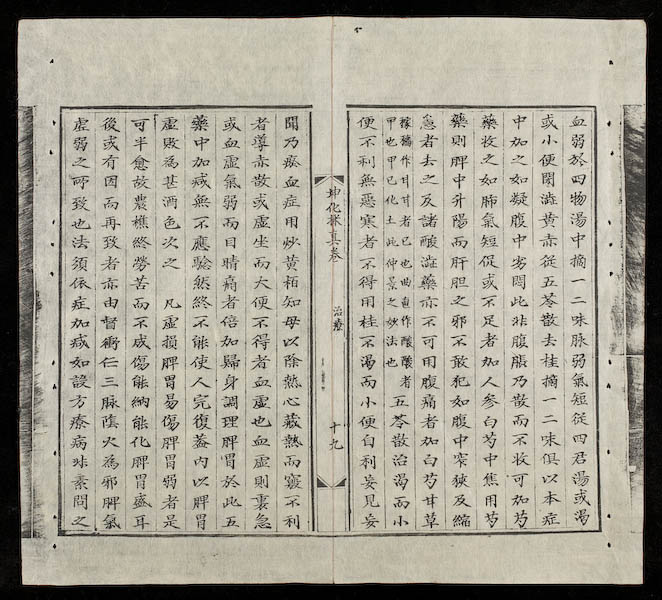 血弱於四物湯中摘一二味脉弱氣短從四君湯或渴
或小便閉澁黃赤從五苓散去桂摘一二味俱以本症
中加之如凝腹中劣悶此非腹脹乃散而不收可加芍
藥收之如肺氣短促或不足者加人參白芍中焦用芍
藥則脾中升陽而肝胆之邪不敢犯如腹中窄狹及縮
急者去之及諸酸澁藥亦不可用腹痛者加白芍甘草
稼穡作甘甘者己也曲直作酸酸者
甲也甲己化土此仲景之妙法也
五苓散治渴而小
便不利無惡寒者不得用桂不渴而小便自利妄見妄
坤化採真卷 治療 十九
聞乃瘀血症用炒黃栢知母以除熱心藏熱而竅不利
者導赤散或虛坐而大便不得者血虛也血虛則裏急
或血虛氣弱而目睛痛者倍加歸身調理脾胃於此五
藥中加减無不應驗然終不能使人完復蓋內以脾胃
虛敗為甚酒色次之 凡虛損脾胃易傷脾胃弱者是
可半愈故農樵終勞苦而不成傷能納能化脾胃盛耳
後或有因而再致者亦由督衝仁三脉陰火為邪脾氣
虛弱之所致也法須依症加减如設方療病非素問之